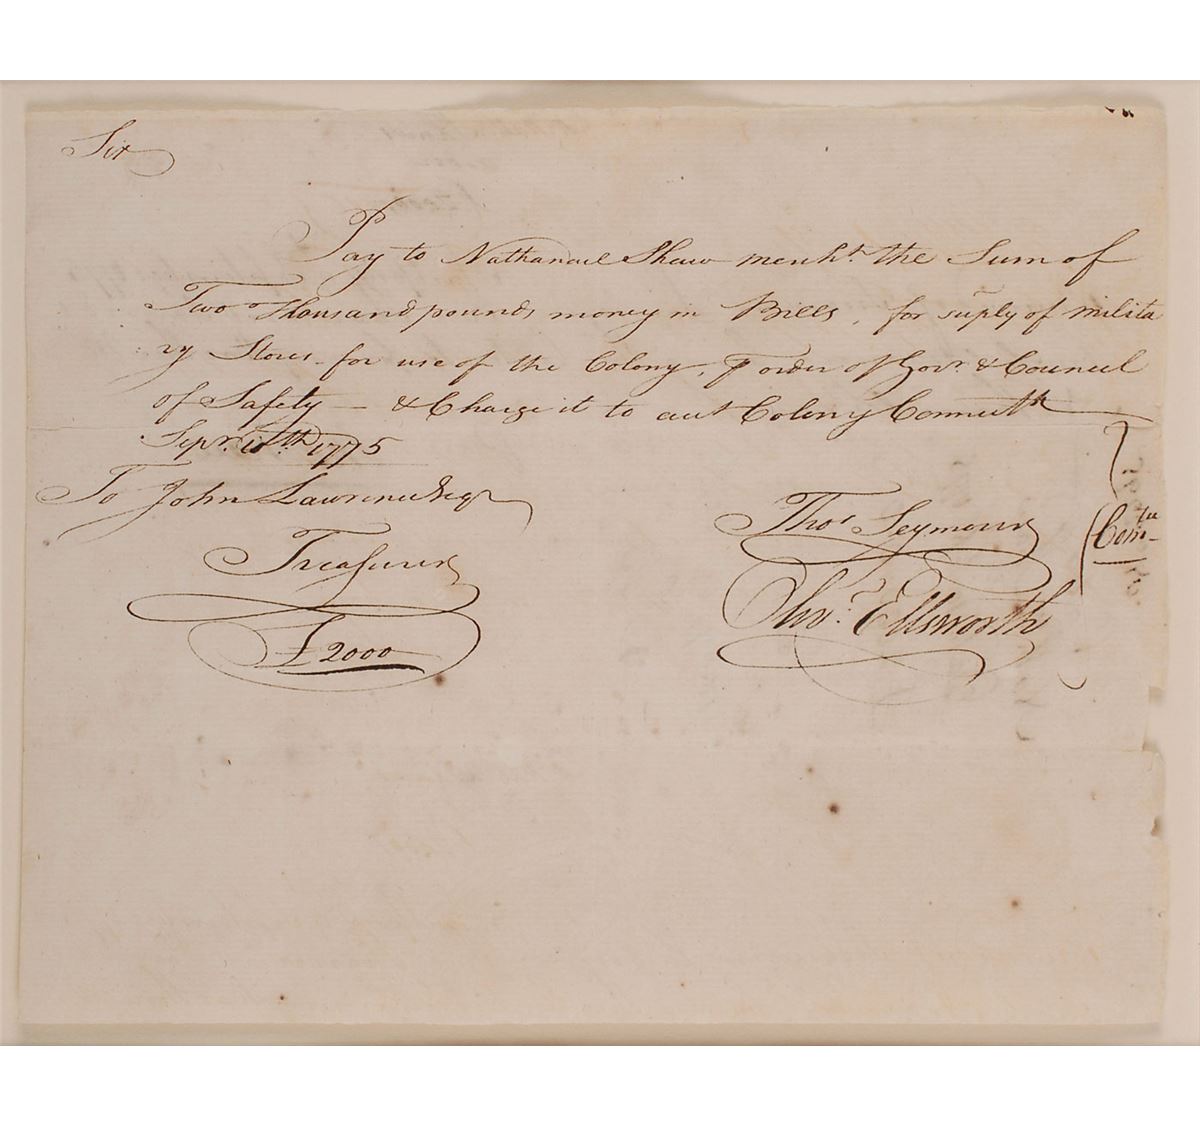 Sir
Pay to Nathanael Shaw merchᵗ. the Sum of
Two Thousand pounds money in Bills, for suply of milita
ry Stores for use of the Colony, ⅌ order of Govʳ. & Council
of Safety — & Charge it to acct Colony Connectᵗ
Sepʳ. 1775
To John Lawrence Esqʳ
Treasurer
£2000
Thoˢ Seymour
Ellsworth
Comᵗᵉᵉ